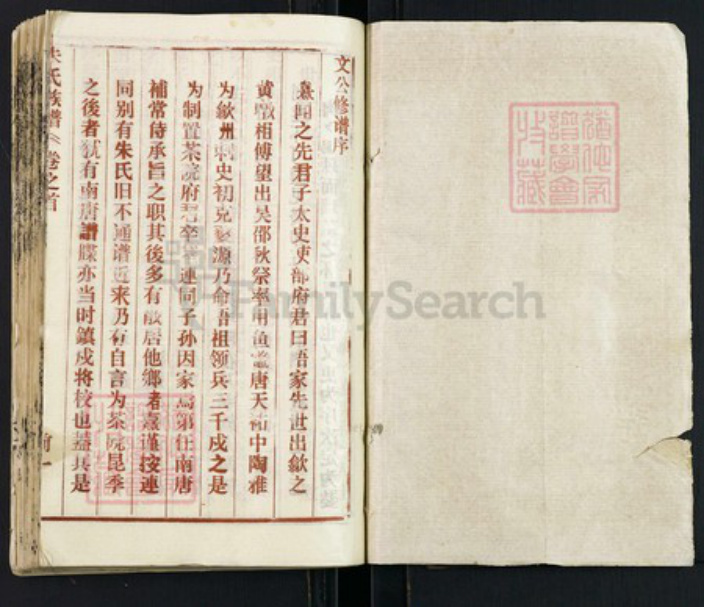 文公修谱序
熹闻之先君子太史吏部府君曰吾家先世出歙之
黄墩相傅望出吴郡秋祭率用鱼鳖唐天祐中陶雅
为歙州刺史初克婺源乃命吾祖领兵三千戍之是
为制置茶院府君卒 连同子孙因家焉第仕南唐
補常侍承旨之职其後多有散居他鄉者熹謹按連
同别有朱氏旧不通谱近来乃有自言为茶院昆季
之後者犹有南唐譜牒亦当时鎮戍将校也蓋其是
朱氏族谱
卷之首
前一
譜學會
收藏
FamilySearch